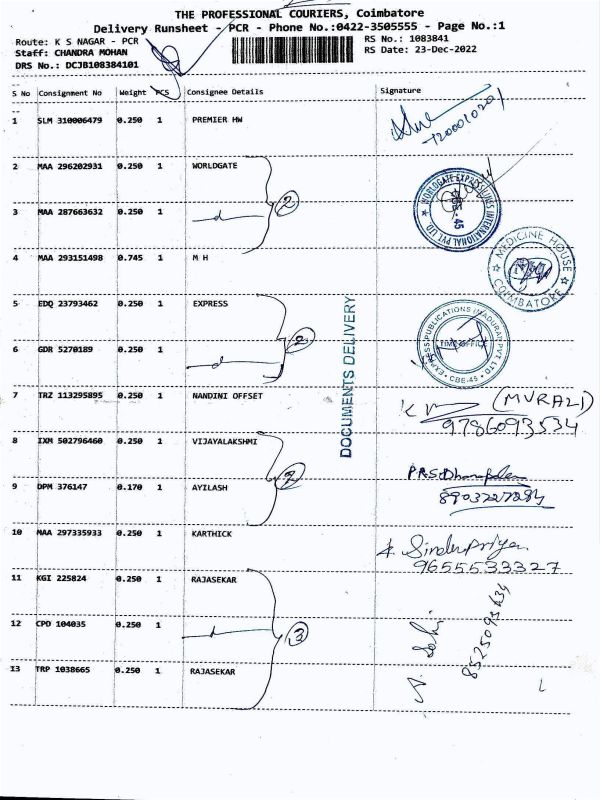 THE PROFESSIONAL COURIERS, Coimbatore
Delivery Runsheet - PCR - Phone No.:0422-3505555 - Page No.:1
Route: K S NAGAR - PCR RS No.: 1083841
Staff: CHANDRA MOHAN RS Date: 23-Dec-2022
DRS No.: DCJB108384101
S No Consignment No Weight PCS Consignee Details Signature
1 SLM 310006479 0.250 1 PREMIER HW
2 MAA 296202931 0.250 1 WORLDGATE
2
3 MAA 287663632 0.250 1
WORLDGATE EXPRESS LINES INTERNATIONAL PVT LTD
CBE-45
4 MAA 293151498 0.745 1 M H
MEDICINE HOUSE
COIMBATORE
5 EDQ 23793462 0.250 1 EXPRESS
2
6 GDR 5270189 0.250 1
EXPRESS PUBLICATIONS (MADURAI) PVT LTD
TIME OFFICE
CBE-45
DOCUMENTS DELIVERY
7 TRZ 113295895 0.250 1 NANDINI OFFSET
(MURALI)
9786093534
8 IXM 502796460 0.250 1 VIJAYALAKSHMI
9 DPM 376147 0.170 1 AYILASH
10 MAA 297335933 0.250 1 KARTHICK
9655533327
11 KGI 225824 0.250 1 RAJASEKAR
12 CPD 104035 0.250 1
3
13 TRP 1038665 0.250 1 RAJASEKAR